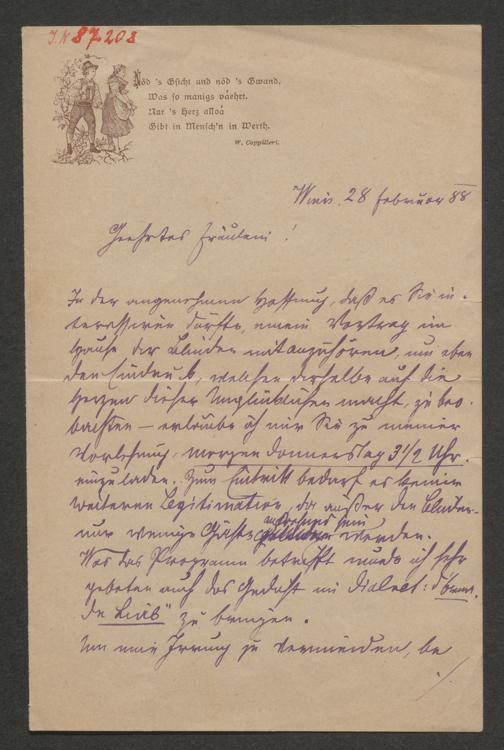 J.N 87208
Nöd 's Gsicht und nöd 's Gwand,
Was so manigs väehrt.
Nur 's Herz alloá
Gibt in Mensch'n in Werth.
W. Cappilleri.
Wien. 28 Februar 88
Geehrtes Fräulein!
In der angenehmen Hoffnung, daß es Sie in-
teressieren dürfte, einem Vortrag im
Hause der Blinden mitanzuhören, um eben
den Eindruck, welchen derselbe auf die
Herzen dieser Unglücklichen macht, zu beo-
bachten – erlaube ich mir Sie zu meiner
Vorlesung, morgen Donnerstag 3 1/2 Uhr.
einzuladen. Zum Eintritt bedarf es keiner
weiteren Legitimation, da außer den Blinden
nur wenige Gäste anwesend sein
werden.
Was das Programm betrifft wurde ich sehr
gebeten auch das Gedicht im Dialect:
zu bringen.
Um eine Irrung zu vermeiden, be
./.